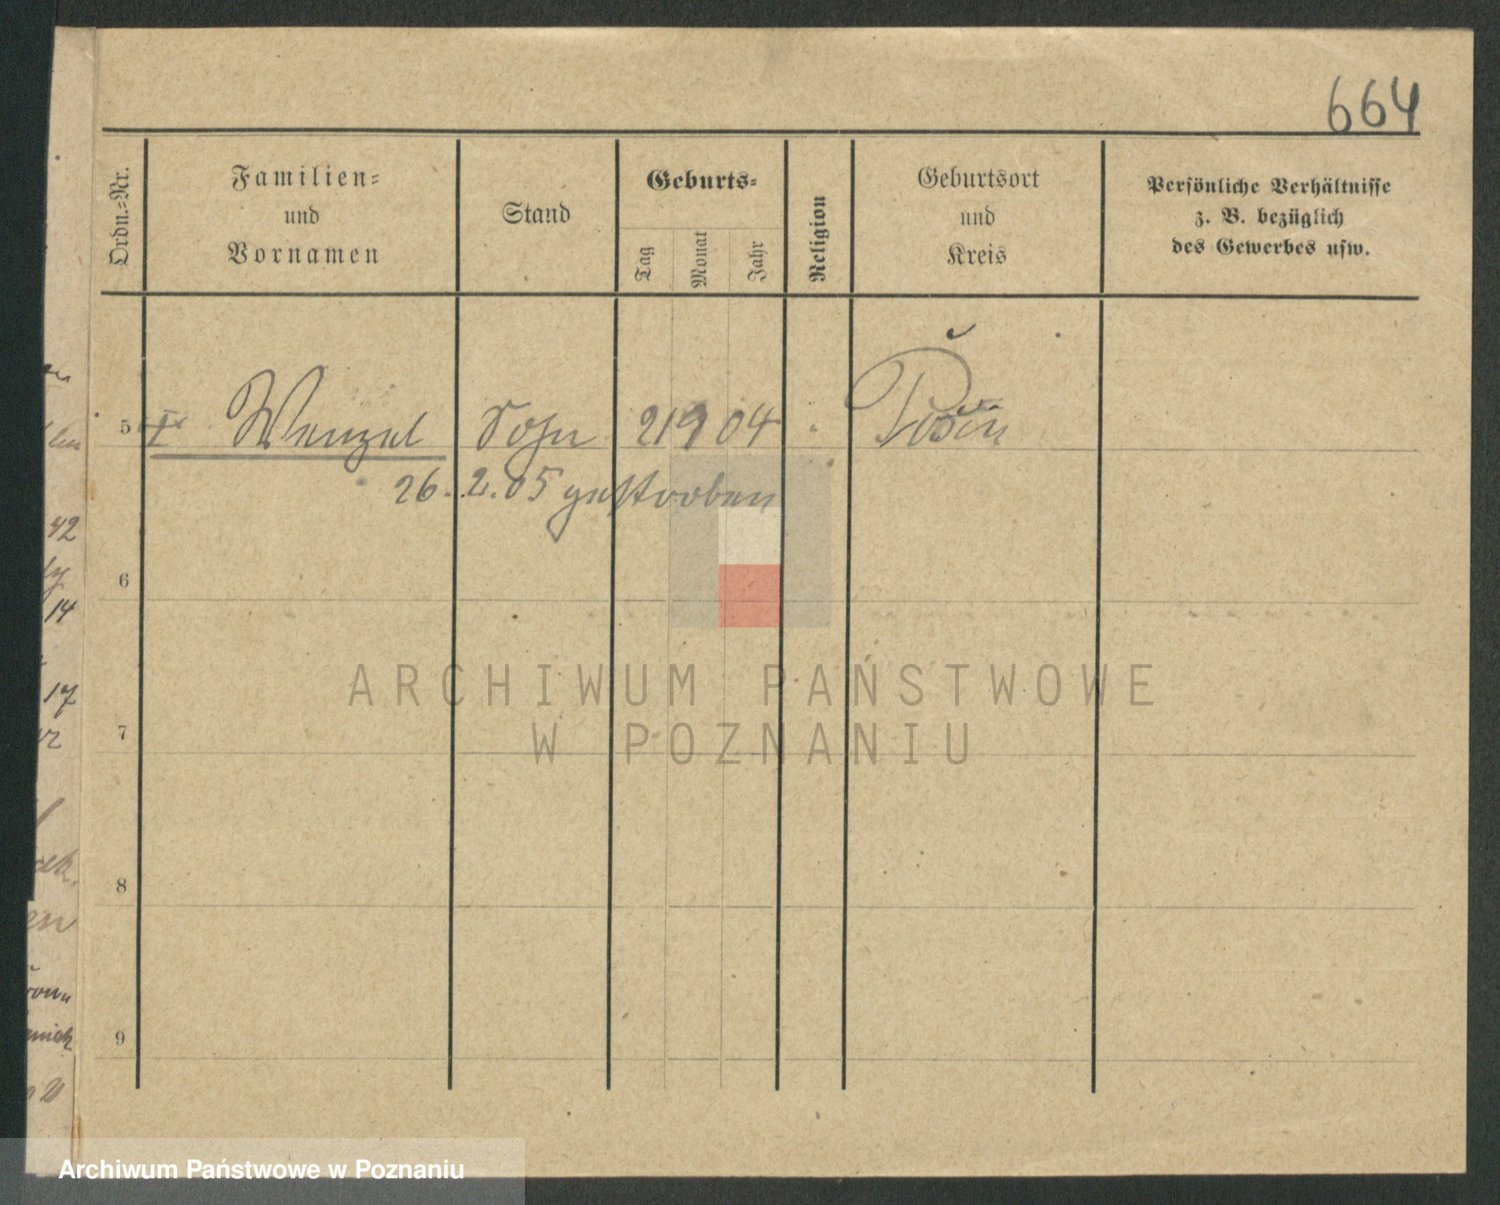 664
Ordn.-Nr.
Familien-
und
Vornamen
Stand
Geburts-
Tag
Monat
Jahr
Religion
Geburtsort
und
Kreis
Persönliche Verhältnisse
z. B. bezüglich
des Gewerbes usw.
5 Wenzel Sohn 21 9 04
26. 2. 05 gestorben
6
7
8
9
42
14
17
ARCHIWUM PAŃSTWOWE
W POZNANIU
Archiwum Państwowe w Poznaniu